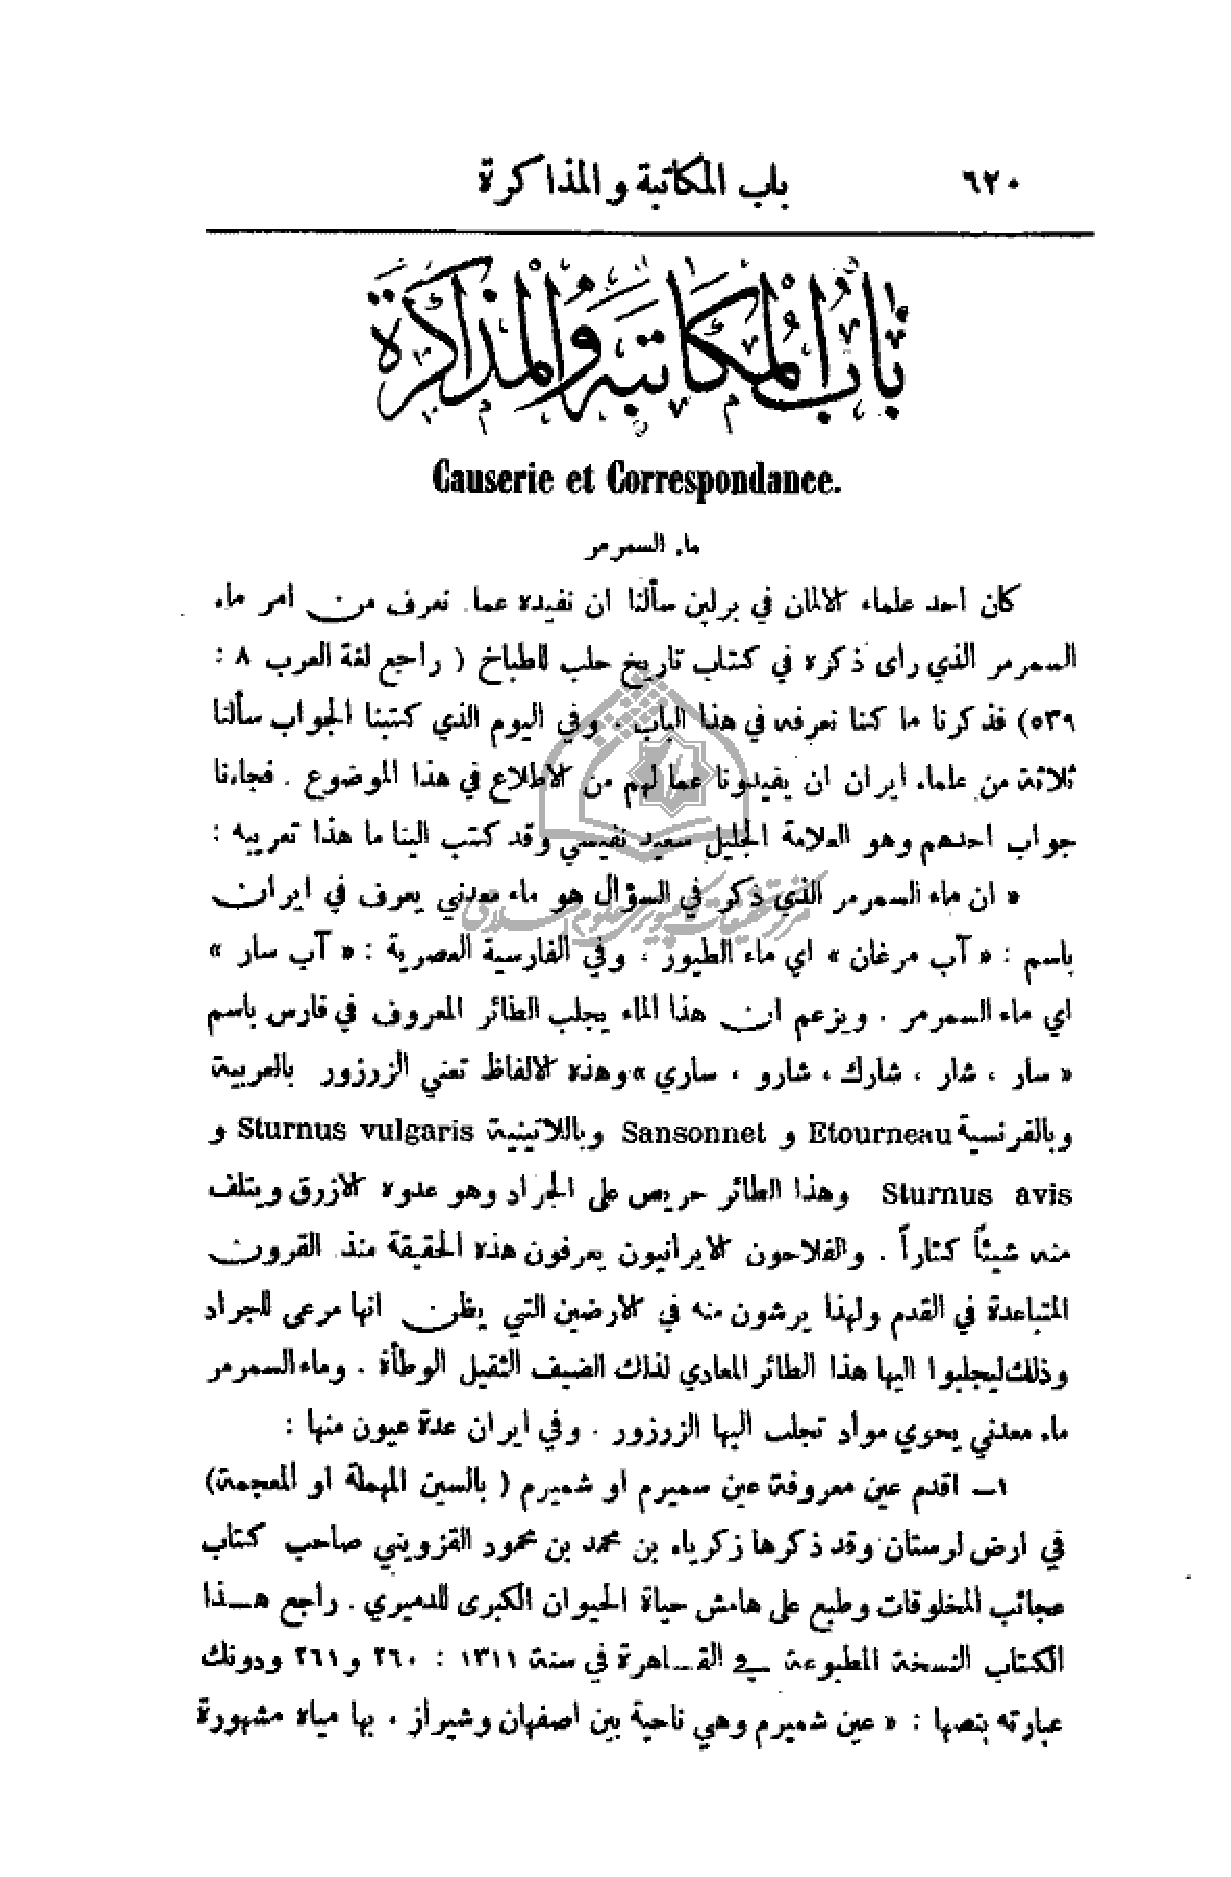 ٦٢٠ باب المكاتبة والمذاكرة
باب المكاتبة والمذاكرة
Causerie et Correspondance.
ماء السمرمر
كان احد علماء الالمان في برلين سألنا ان نفيده عما نعرف من امر ماء
السمرمر الذي رأى ذكره في كتاب تاريخ حلب للطباخ ( راجع لغة العرب ٨ :
٥٣٩) فذكرنا ما كنا نعرفه في هذا الباب . وفي اليوم الذي كتبنا الجواب سألنا
ثلاثة من علماء ايران ان يفيدونا عما لهم من الاطلاع في هذا الموضوع . فجاءنا
جواب احدهم وهو العلامة الجليل سعيد نفيسي وقد كتب الينا ما هذا تعريبه :
« ان ماء السمرمر الذي ذكر في السؤال هو ماء معدني يعرف في ايران
باسم : « آب مرغان » اي ماء الطيور ، وفي الفارسية العصرية : « آب سار »
اي ماء السمرمر . ويزعم ان هذا الماء يجلب الطائر المعروف في فارس باسم
« سار ، شار ، شارك ، شارو ، ساري » وهذه الالفاظ تعني الزرزور بالعربية
وبالفرنسية Etourneau و Sansonnet وباللاتينية Sturnus vulgaris و
Sturnus avis وهذا الطائر حريص على الجراد وهو عدوه الازرق ويتلف
منه شيئاً كثاراً . والفلاحون الايرانيون يعرفون هذه الحقيقة منذ القرون
المتباعدة في القدم ولهذا يرشون منه في الارضين التي يظن انها مرعى للجراد
وذلك ليجلبوا اليها هذا الطائر المعادي لذلك الضيف الثقيل الوطأة . وماء السمرمر
ماء معدني يحوي مواد تجلب اليها الزرزور . وفي ايران عدة عيون منها :
١ــ اقدم عين معروفة عين سميرم او شميرم ( بالسين المهملة او المعجمة)
في ارض لرستان وقد ذكرها زكرياء بن محمد بن محمود القزويني صاحب كتاب
عجائب المخلوقات وطبع على هامش حياة الحيوان الكبرى للدميري . راجع هـذا
الكتاب النسخة المطبوعة في القـاهرة في سنة ١٣١١ : ٢٦٠ و ٢٦١ ودونك
عبارته بنصها : « عين شميرم وهي ناحية بين اصفهان وشيراز ، بها مياه مشهورة
مركز تحقيقات كامپيوتري علوم اسلامي